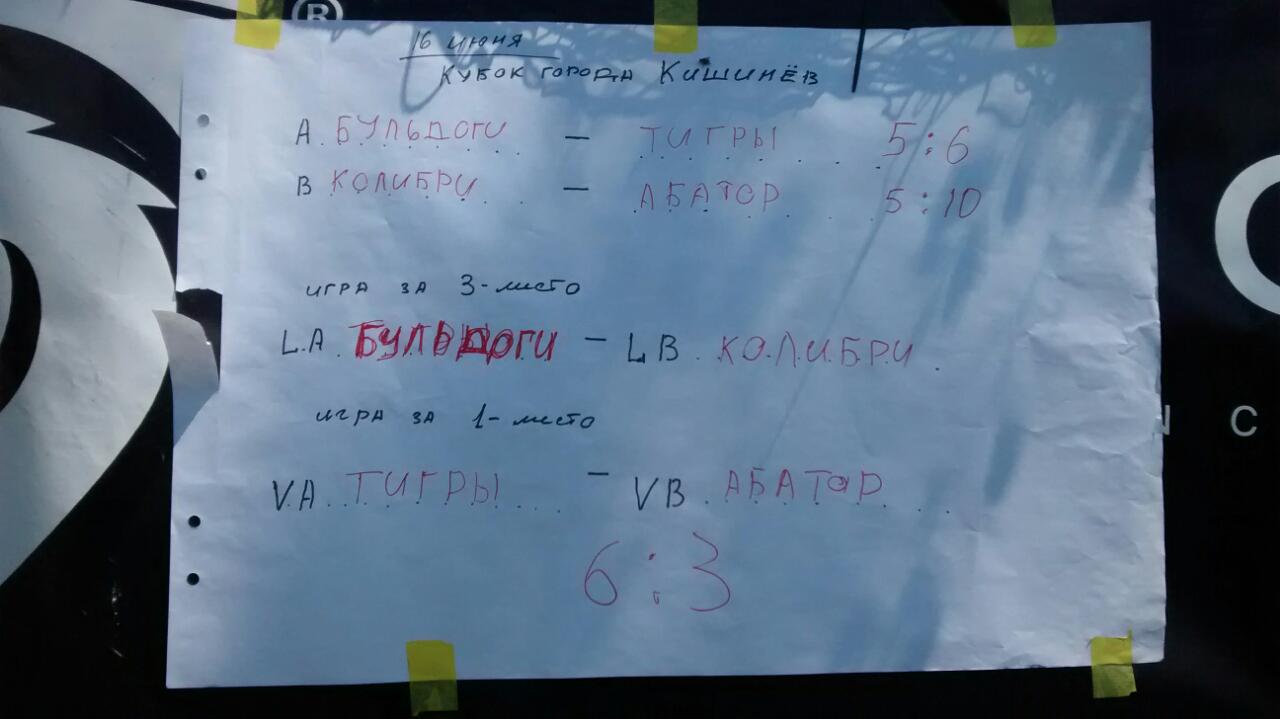 ®
16 июня
Кубок города Кишинёв
А. БУЛЬДОГИ – ТИГРЫ 5:6
В КОЛИБРИ – АБАТОР 5:10
игра за 3-место
L.A. БУЛЬДОГИ – LB. КОЛИБРИ.
игра за 1-место
V.A. ТИГРЫ – VB. АБАТОР
6:3
N C